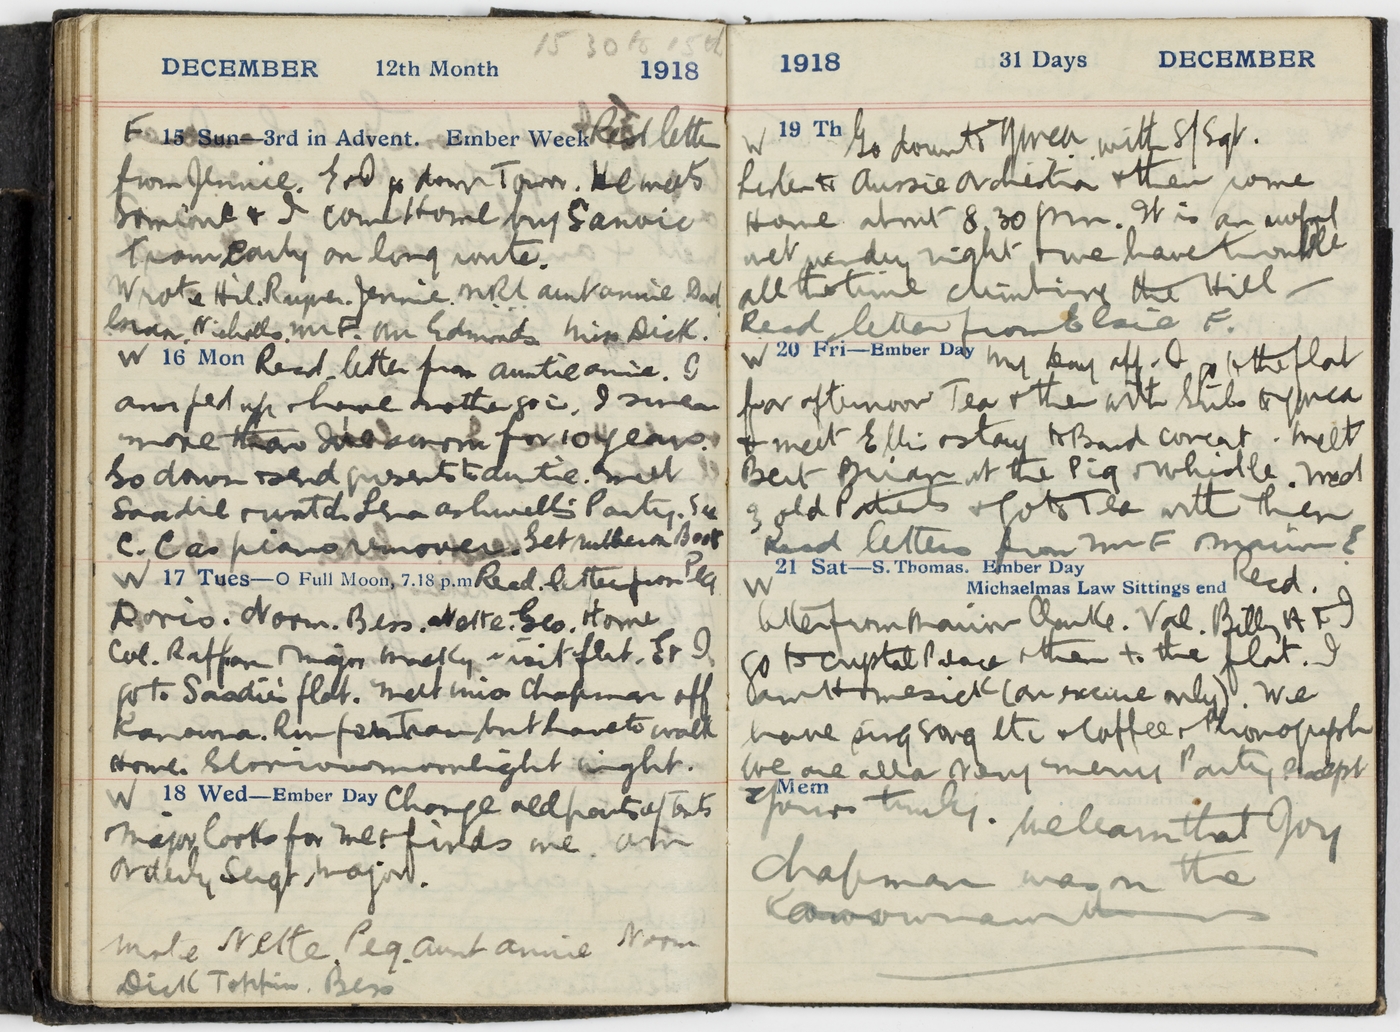 15 30 to 15th
DECEMBER 12th Month 1918
F 15 Sun—3rd in Advent. Ember Week Recd letter
from Jennie. E & I go down Town. He meets
Someone & I come Home by
Tram Early on long route.
Wrote Hil. Jennie. aunt annie. Dad
Nicholls. Mr F. Mr Edmonds Miss Dick.
W 16 Mon Read letter from auntie annie. I
am fed up & have another go in. I swear
more than Ive sworn for 10 years.
Go down & send presents to auntie. meet
Saadie & watch Lena ashwell's Party. See
C. C as piano remover. Get Book
W 17 Tues—O Full Moon, 7.18 p.m Read. letter from Peg
Doris. Norm. Bess. Nette. Geo. Home
Col. Raffan & major visit flat. E & I
go to Saadie's flat. meet miss Chapman off
Kanowna. Run for Tram but have to walk
Home. Glorious moonlight night.
W 18 Wed—Ember Day Change old pants &
major looks for me & finds me. am
orderly Sergt major.
Nette. Peg. aunt annie Norm
Dick Toppin. Bess
1918 31 Days DECEMBER
W 19 Th Go down to with S/Sgt.
Listen to Aussie Orchestra & then come
Home about 8.30 pm. It is an awful
wet windy night & we have trouble
all the time climbing the Hill —
Read letter from Elsie F.
W 20 Fri—Ember Day my day off. I go to the flat
for afternoon Tea & then with to
& meet Ellis & stay to Band concert. Meet
Bert Brian at the Pig & Whistle. Meet
3 old Patients & Go to Tea with them
Read letters from Mr F & E
21 Sat—S. Thomas. Ember Day
W Michaelmas Law Sittings end Recd.
letter from Clarke. Val. Billy H & I
go to crystal Palace & then to the flat. I
am Homesick (an excuse only). We
have sing song etc & Coffee & Phonograph
We are all a very merry Party except
Mem
yours truly. We learn that Joy
Chapman was on the